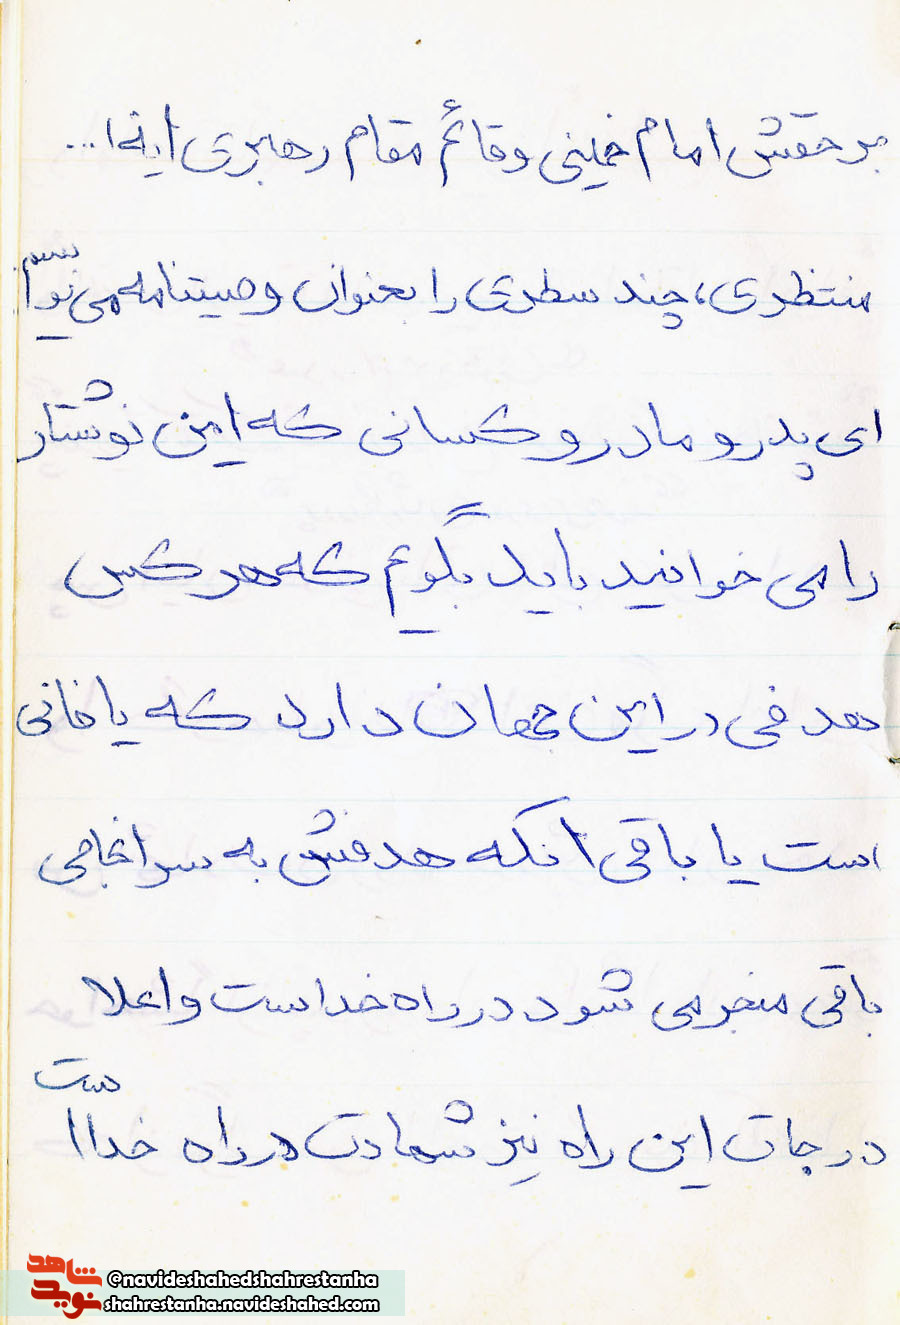 بر حقش امام خمینی و قائم مقام رهبری ایة ا...
منتظری، چند سطری را بعنوان وصیتنامه می نویسم
ای پدر و مادر و کسانی که این نوشتار
را می خوانید باید بگویم که هر کس
هدفی در این جهان دارد که یا فانی
است یا باقی انکه هدفش به سرانجامی
باقی منجر می شود در راه خداست و اعلا
درجات این راه نیز شهادت در راه خدا است
شاهد
نوید
@navideshahedshahrestanha
shahrestanha.navideshahed.com